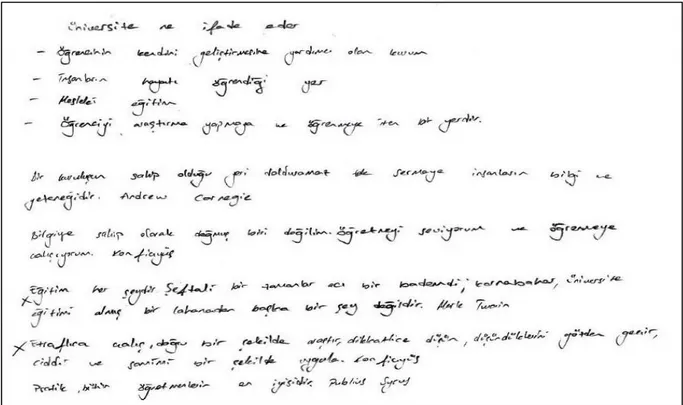 üniversite ne ifade eder
- Öğrencinin kendini geliştirmesine yardımcı olan kurum
- İnsanların hayatı öğrendiği yer
- Mesleki eğitim
- Öğrenciyi araştırma yapmaya ve öğrenmeye iten bir yerdir.
Bir kuruluşun sahip olduğu yeri doldurulamaz tek sermaye insanların bilgi ve
yeteneğidir. Andrew Carnegie
Bilgiye sahip olarak doğmuş biri değilim. Öğretmeyi seviyorum ve öğrenmeye
çalışıyorum. Konfiçyüs
x Eğitim her şeydir Şeftali bir zamanlar acı bir bademdi; karnabahar, üniversite
eğitimi almış bir lahanadan başka bir şey değildir. Mark Twain
x Etraflıca çalış, doğru bir şekilde araştır, dikkatlice düşün, düşündüklerini gözden geçir,
ciddi ve samimi bir şekilde uygula. Konfiçyüs
Pratik, bütün öğretmenlerin en iyisidir. Publius Syrus